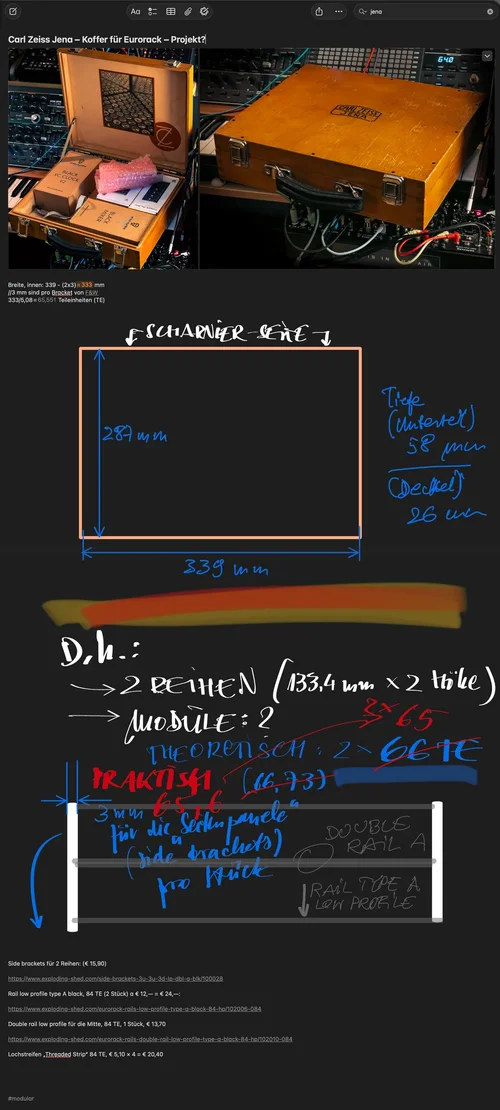 Aa
jena
Carl Zeiss Jena – Koffer für Eurorack – Projekt?
640
CARL ZEISS
JENA
BLACK
VC CLOCK
V2
BLACK
MIXER
Breite, innen: 339 – (2x3)=333 mm
//3 mm sind pro Bracket von F&W
333/5,08=65,551 Teileinheiten (TE)
SCHARNIER-SEITE
287 mm
Tiefe
(Unterteil)
58 mm
(Deckel)
26 mm
339 mm
D.h.:
→ 2 REIHEN (133,4 mm × 2 Höhe)
→ MODULE: ?
2× 65
THEORETISCH: 2× 66 TE
PRAKTISCH
(66,73)
65,6
3 mm
für die Seitenpanele"
(side brackets)
pro Stück
DOUBLE
RAIL A
RAIL TYPE A
LOW PROFILE
Side brackets für 2 Reihen: (€ 15,90)
https://www.exploding-shed.com/side-brackets-3u-3u-3d-lp-dbl-a-blk/100028
Rail low profile type A black, 84 TE (2 Stück) a € 12,— = € 24,—:
https://www.exploding-shed.com/eurorack-rails-low-profile-type-a-black-84-hp/102006-084
Double rail low profile für die Mitte, 84 TE, 1 Stück, € 13,70
https://www.exploding-shed.com/eurorack-rails-double-rail-low-profile-type-a-black-84-hp/102010-084
Lochstreifen „Threaded Strip" 84 TE, € 5,10 × 4 = € 20,40
#modular